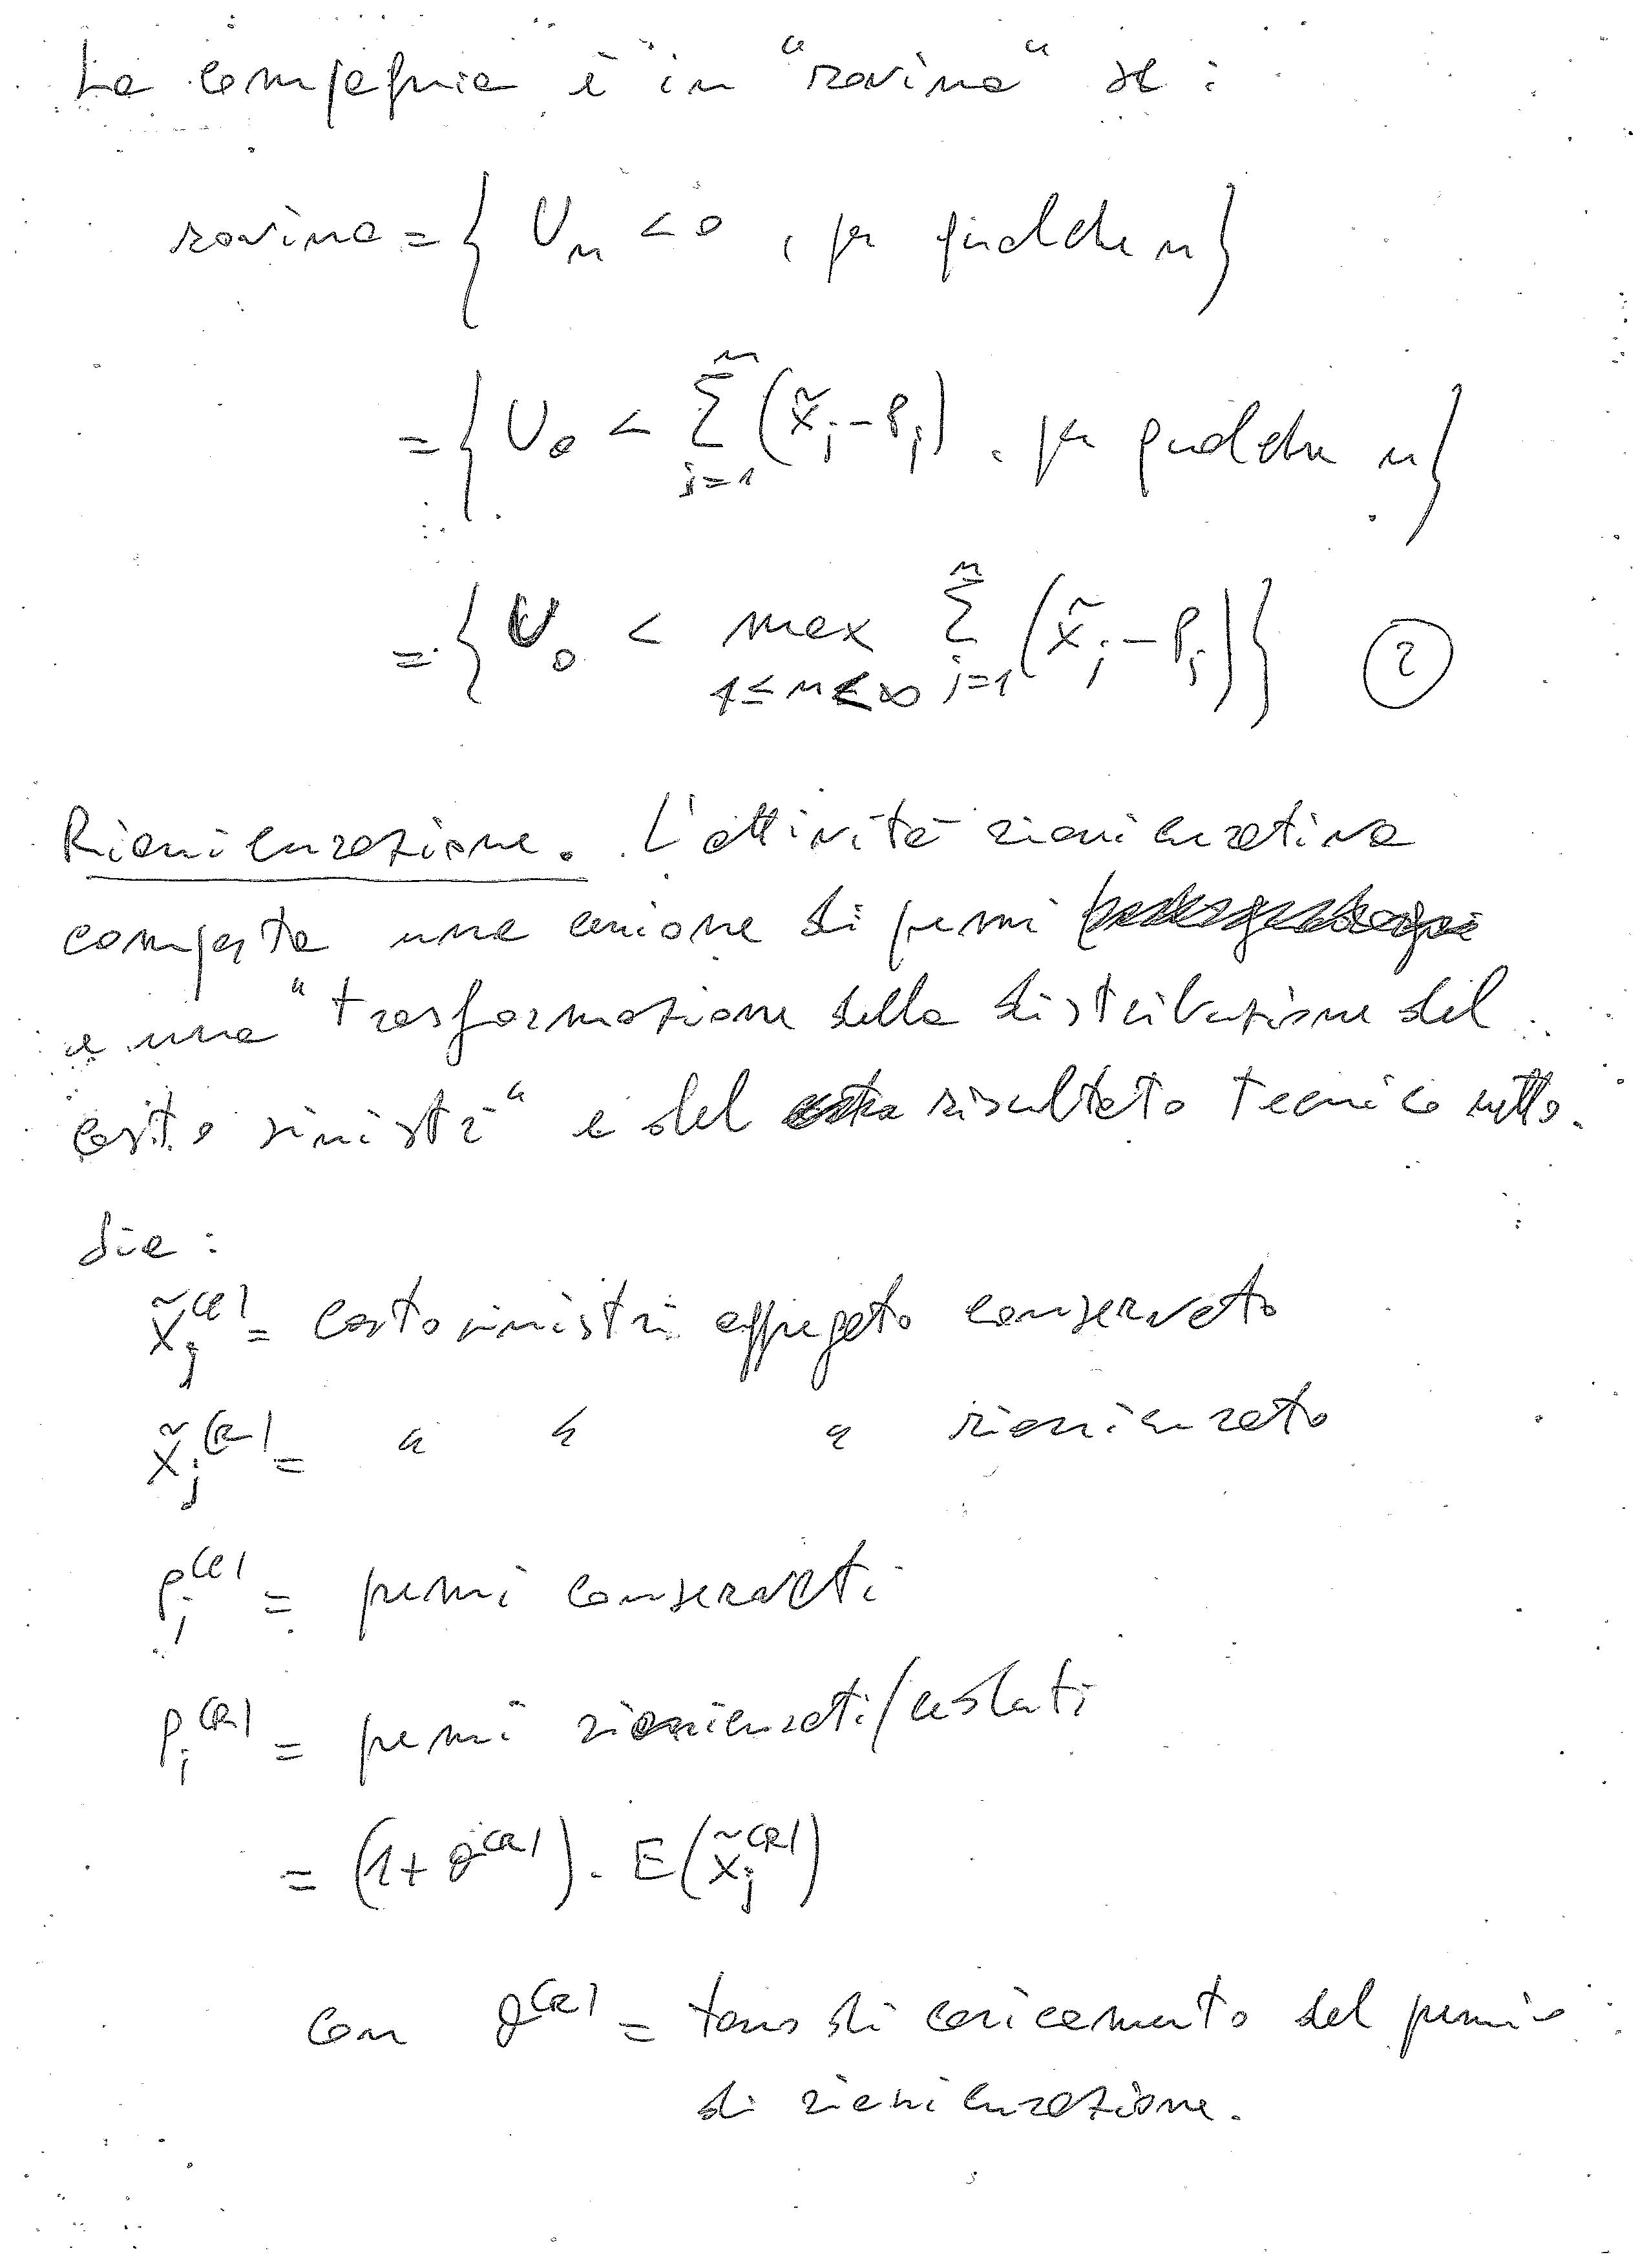 La compagnia è in "rovina" se :
rovina = { Uₙ < 0 , per qualche n }
= { U₀ < Σⁿⱼ₌₁ (x̃ⱼ - Pⱼ) , per qualche n }
= { U₀ < max 1≤n<∞ Σⁿⱼ₌₁ (x̃ⱼ - Pⱼ) } ②
Riassicurazione. L'attività riassicurativa
comporta una cessione di premi
e una "trasformazione della distribuzione del
costo sinistri" e del risultato tecnico netto.
Sia :
x̃ⱼ^(C) = costo sinistri aggregato conservato
x̃ⱼ^(R) = " " " riassicurato
Pⱼ^(C) = premi conservati
Pⱼ^(R) = premi riassicurati/ceduti
= (1 + θ^(R)) · E(x̃ⱼ^(R))
con θ^(R) = tasso di caricamento del premio
di riassicurazione.